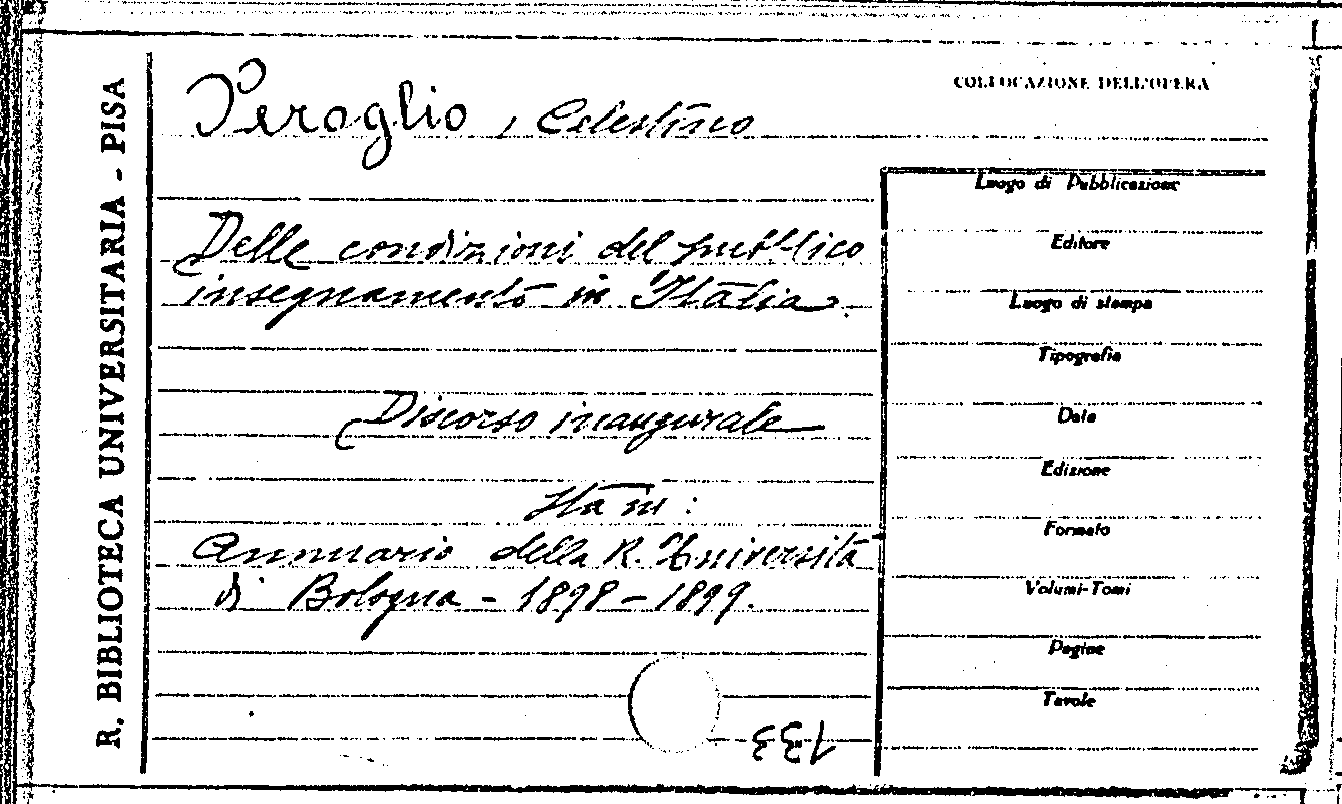 R. BIBLIOTECA UNIVERSITARIA - PISA
COLLOCAZIONE DELL'OPERA
Peroglio, Celestino
Delle condizioni del pubblico
insegnamento in Italia.
Discorso inaugurale
Sta in:
Annuario della R. Università
di Bologna - 1898-1899.
133
Luogo di Pubblicazione
Editore
Luogo di stampa
Tipografia
Data
Edizione
Formato
Volumi-Tomi
Pagine
Tavole